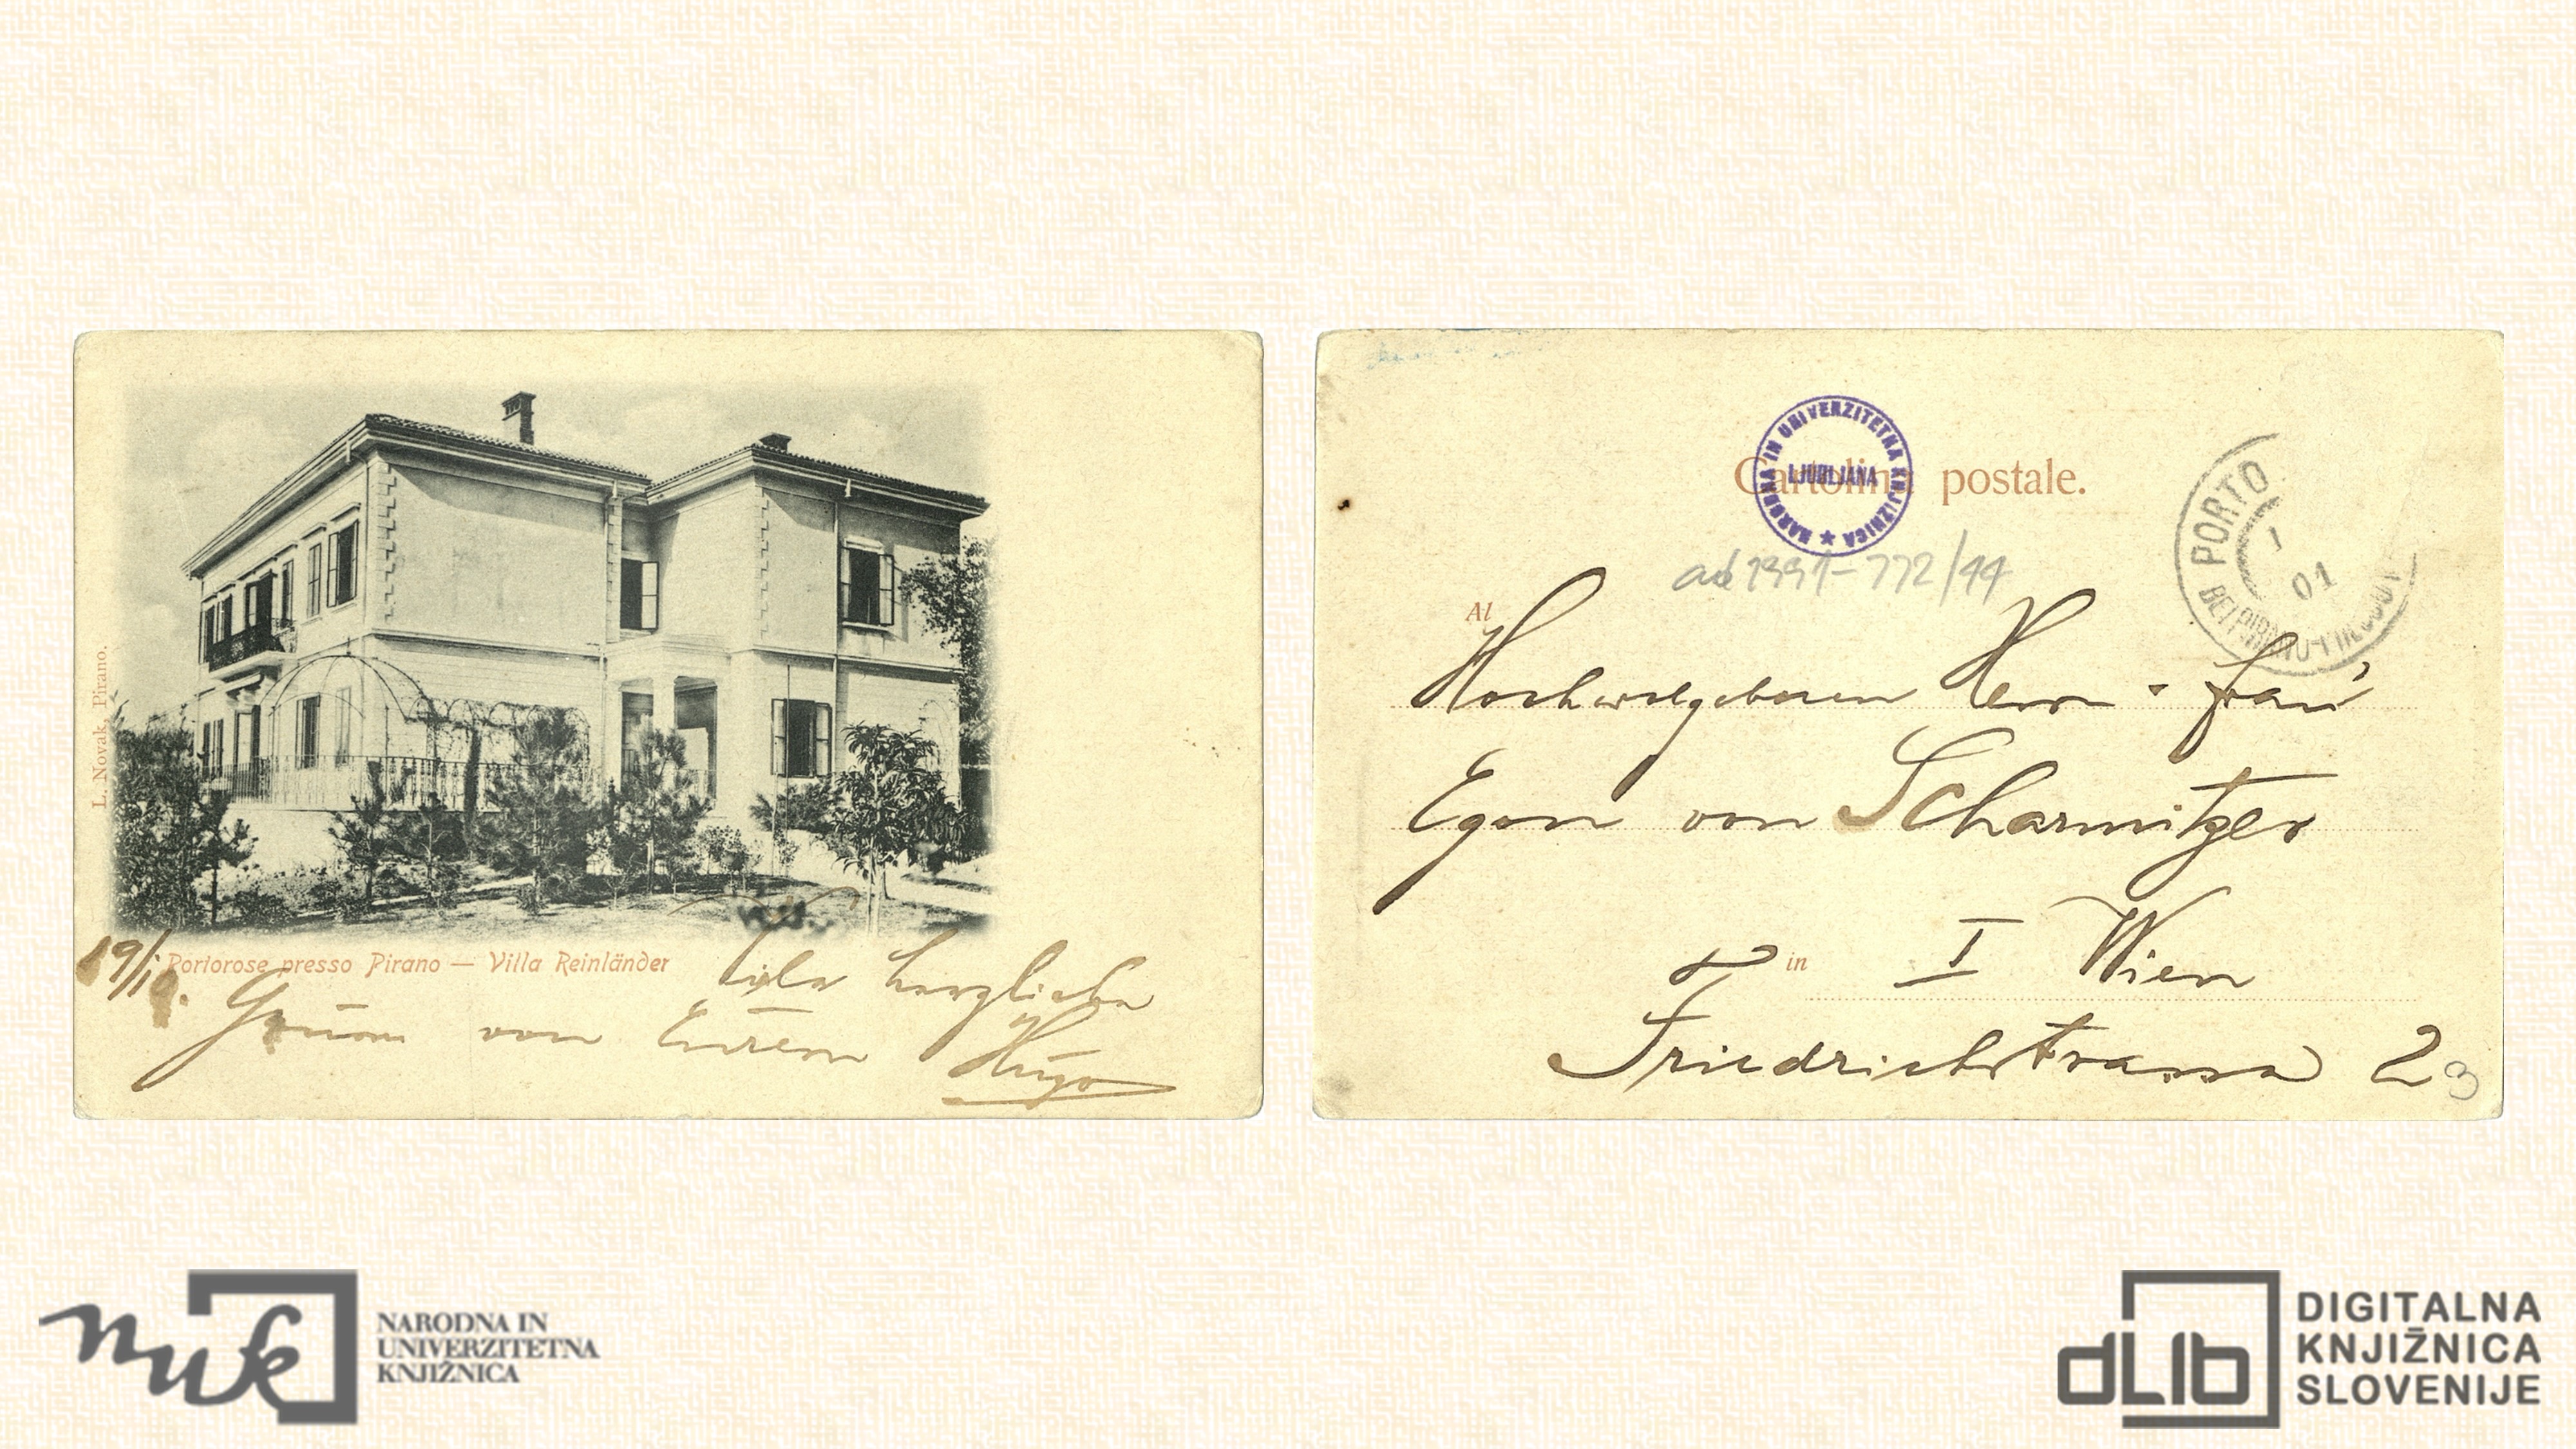 L. Novak, Pirano.
19/10.
Portorose presso Pirano — Villa Reinländer
Viele herzliche
Grüsse von Eurem Hugo
Cartolina postale.
NARODNA IN UNIVERZITETNA KNJIŽNICA ★
LJUBLJANA
ad 1991-772/44
PORTO
1
01
Al
Hochwolgeboren Herr - Frau
Egon von Scharmitzer
in I Wien
Friedrichstrasse 2
3
nuk
NARODNA IN
UNIVERZITETNA
KNJIŽNICA
dLib
DIGITALNA
KNJIŽNICA
SLOVENIJE